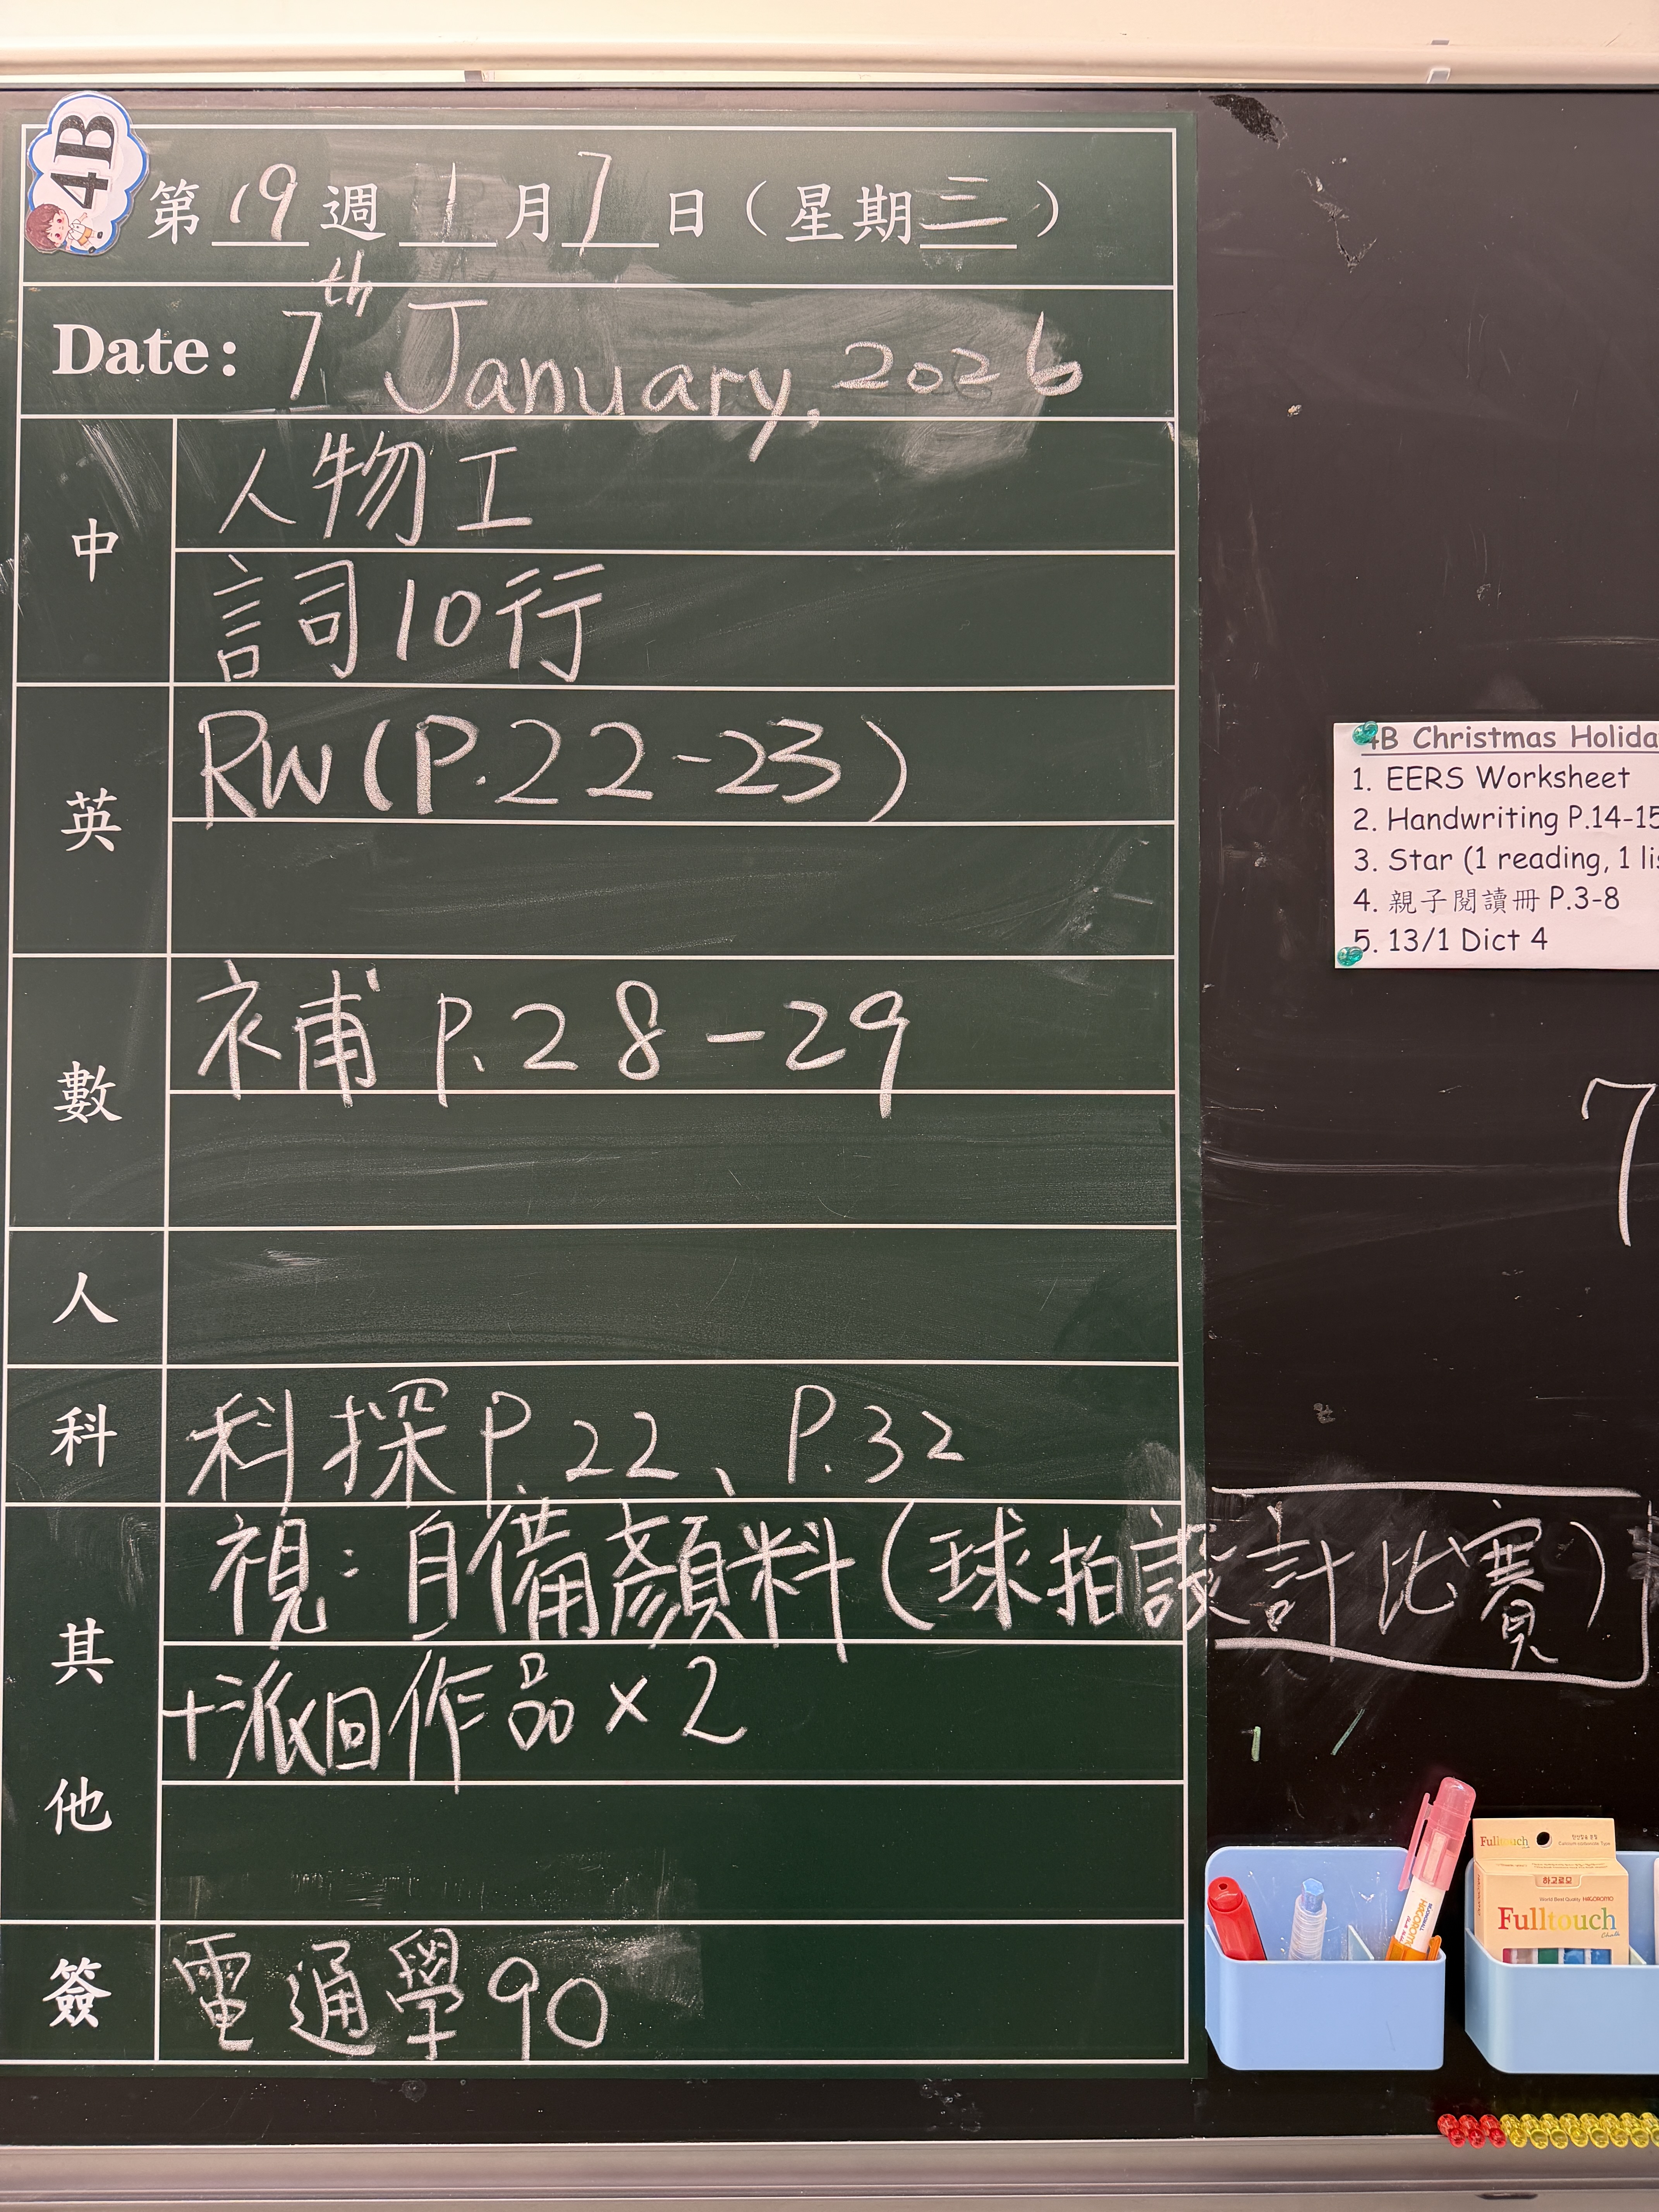 4B
第19週1月7日（星期三）
Date: 7th January, 2026
中
人物工
詞10行
英
RW(P.22-23)
數
補 P.28-29
人
科
科探P.22、P.32
其他
視：自備顏料(球拍設計比賽)
+派回作品×2
簽
電通學90
4B Christmas Holida
1. EERS Worksheet
2. Handwriting P.14-15
3. Star (1 reading, 1 lis
4. 親子閱讀冊 P.3-8
5. 13/1 Dict 4
7
Fulltouch
하고로모
World Best Quality HAGOROMO
Fulltouch
Chalk